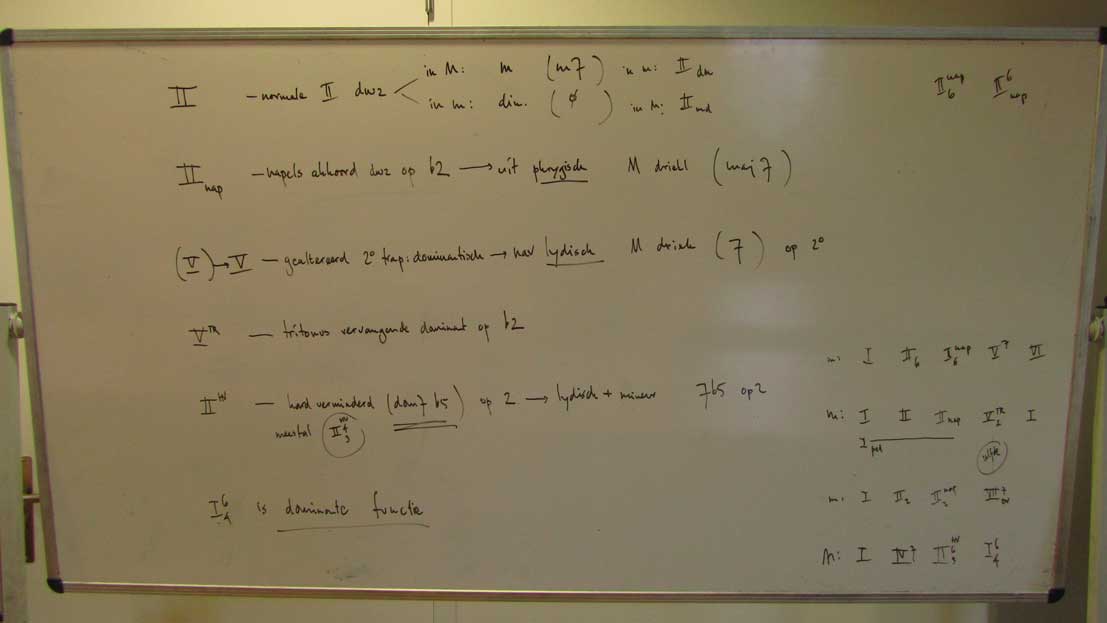 II – normale II dwz in M: m (m7) in m: II dm
in m: dim. (ø) in M: II md
II 6 nap II 6 nap
II nap – napels akkoord dwz op b2 → uit phrygisch M drickl (maj 7)
(V) → V – gealtereerd 2° trap: dominantisch → naar lydisch M drickl (7) op 2°
V TR – tritonus vervangende dominant op b2
II HV – hard verminderd (dom7 b5) op 2 → lydisch + mineur 7b5 op 2
meestal II HV 4 3
I 6 4 is dominante functie
m: I II 6 I 6 nap V 7 VI
m: I II II nap V TR 2 I
I ped
m: I II 2 II 2 nap
M: I IV 7 II HV 6 5 I 6 4